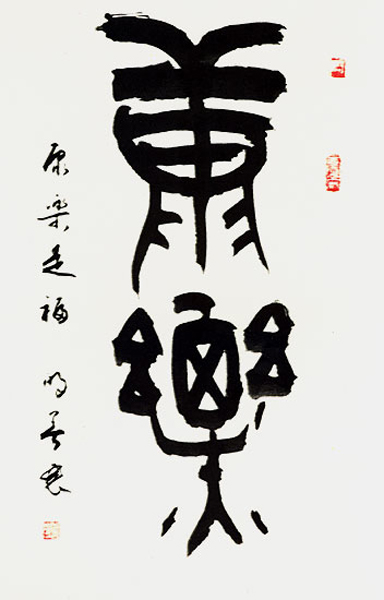 康樂
康樂是福